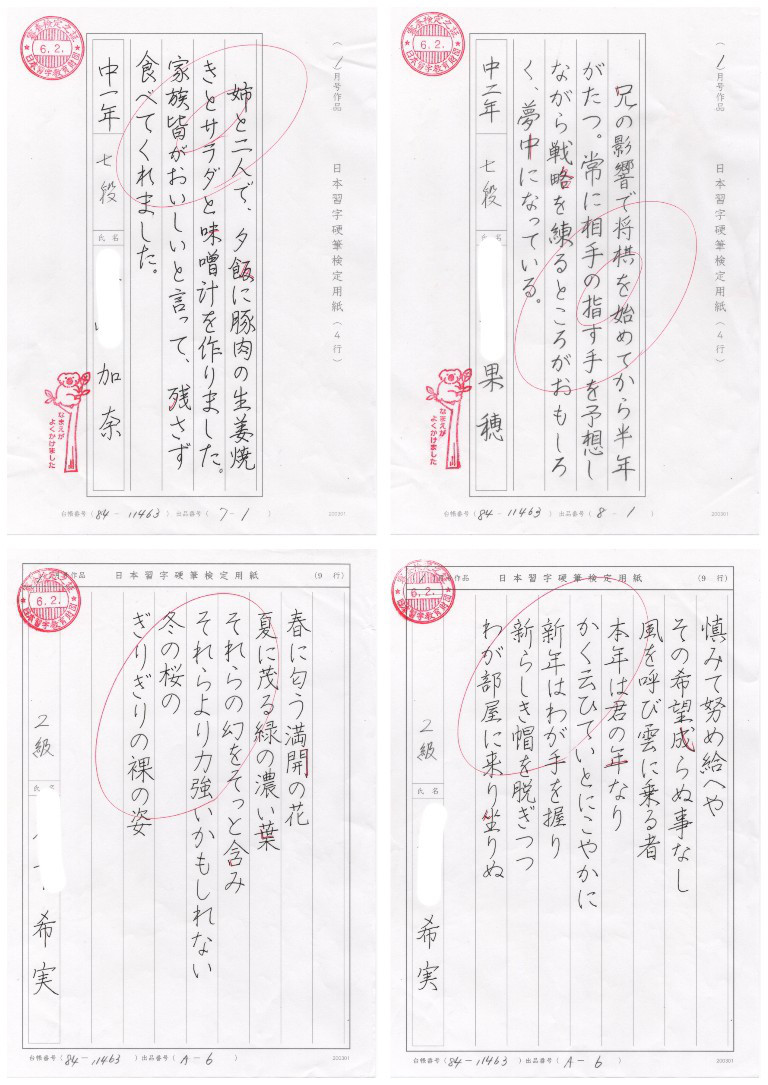 審査検定之証
6.2.
日本習字教育財団
(1月号作品
日本習字硬筆検定用紙(4行)
姉と二人で、夕飯に豚肉の生姜焼
きとサラダと味噌汁を作りました。
家族皆がおいしいと言って、残さず
食べてくれました。
中一年
七段
氏名
加奈
なまえが
よくかけました
台帳番号(84-11463)出品番号(7-1)
200301
審査検定之証
6.2.
日本習字教育財団
(1月号作品
日本習字硬筆検定用紙(4行)
兄の影響で将棋を始めてから半年
がたつ。常に相手の指す手を予想し
ながら戦略を練るところがおもしろ
く、夢中になっている。
中二年
七段
氏名
果穂
なまえが
よくかけました
台帳番号(84-11463)出品番号(8-1)
200301
6.2.
日本習字教育財団
月号作品
日本習字硬筆検定用紙
(9行)
春に匂う満開の花
夏に茂る緑の濃い葉
それらの幻をそっと含み
それらより力強いかもしれない
冬の桜の
ぎりぎりの裸の姿
2級
氏名
希実
台帳番号(84-11463)出品番号(A-6)
200301
6.2.
日本習字教育財団
号作品
日本習字硬筆検定用紙
(9行)
慎みて努め給へや
その希望成らぬ事なし
風を呼び雲に乗る者
本年は君の年なり
かく云ひていとにこやかに
新年はわが手を握り
新らしき帽を脱ぎつつ
わが部屋に来り坐りぬ
2級
氏名
希実
台帳番号(84-11463)出品番号(A-6)
200301